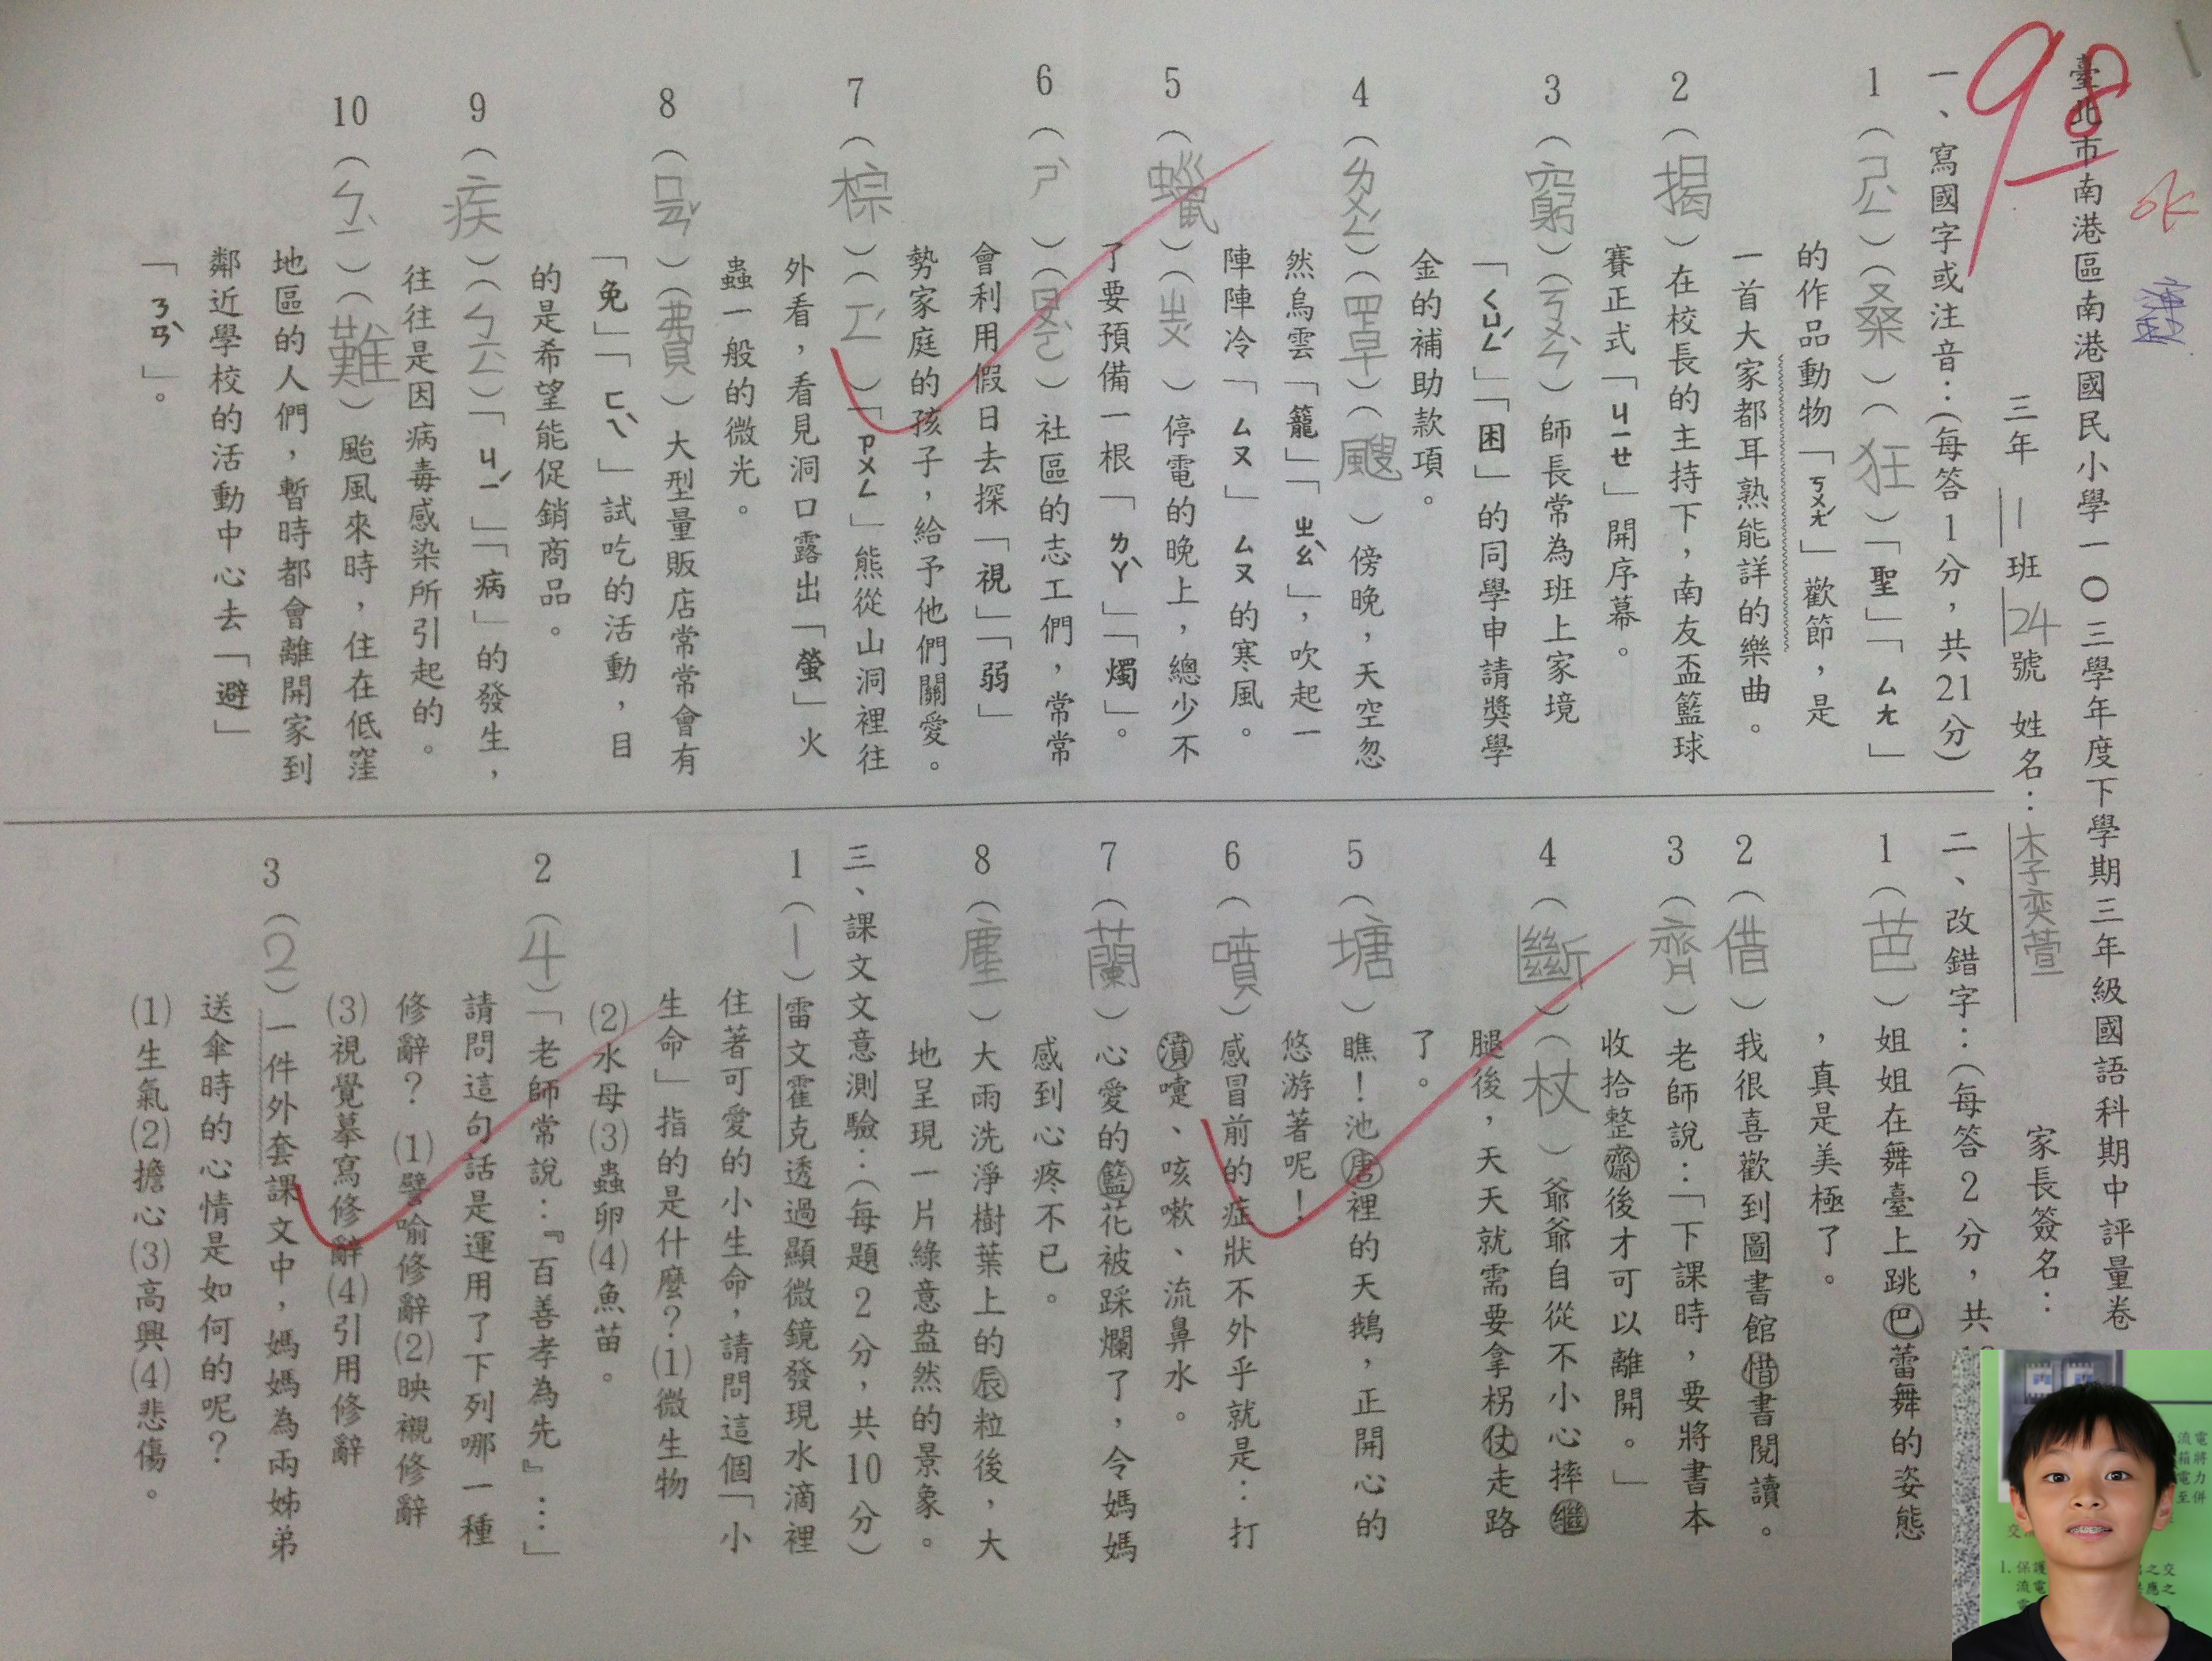 98
臺北市南港區南港國民小學一〇三學年度下學期三年級國語科期中評量卷
三年 一 班 24 號 姓名：李奕萱 家長簽名：
一、寫國字或注音：(每答1分，共21分)
1（ㄕㄥˋ）（桑）（狂）「聖」「ㄙㄤ」
的作品動物「ㄎㄨㄤˊ」歡節，是
一首大家都耳熟能詳的樂曲。
2（揭）在校長的主持下，南友盃籃球
賽正式「ㄐㄧㄝ」開序幕。
3（窮）（ㄎㄨㄣˋ）師長常為班上家境
「ㄑㄩㄥˊ」「困」的同學申請獎學
金的補助款項。
4（ㄌㄨㄥˊ）（罩）（颼）傍晚，天空忽
然烏雲「籠」「ㄓㄠˋ」，吹起一
陣陣冷「ㄙㄡ」ㄙㄡ的寒風。
5（蠟）（ㄓㄨˊ）停電的晚上，總少不
了要預備一根「ㄌㄚˋ」「燭」。
6（ㄕˋ）（ㄖㄨㄛˋ）社區的志工們，常常
會利用假日去探「視」「弱」
勢家庭的孩子，給予他們關愛。
7（棕）（ㄧㄥˊ）「ㄗㄨㄥ」熊從山洞裡往
外看，看見洞口露出「螢」火
蟲一般的微光。
8（ㄇㄧㄢˇ）（費）大型量販店常常會有
「免」「ㄈㄟˋ」試吃的活動，目
的是希望能促銷商品。
9（疾）（ㄅㄧㄥˋ）「ㄐㄧˊ」「病」的發生，
往往是因病毒感染所引起的。
10（ㄅㄧˋ）（難）颱風來時，住在低窪
地區的人們，暫時都會離開家到
鄰近學校的活動中心去「避」
「ㄋㄢˋ」。
二、改錯字：(每答2分，共
1（芭）姐姐在舞臺上跳巴蕾舞的姿態
，真是美極了。
2（借）我很喜歡到圖書館惜書閱讀。
3（齊）老師說：「下課時，要將書本
收拾整齋後才可以離開。」
4（斷）（杖）爺爺自從不小心摔繼
腿後，天天就需要拿柺仗走路
了。
5（塘）瞧！池唐裡的天鵝，正開心的
悠游著呢！
6（噴）感冒前的症狀不外乎就是：打
濆嚏、咳嗽、流鼻水。
7（蘭）心愛的籃花被踩爛了，令媽媽
感到心疼不已。
8（塵）大雨洗淨樹葉上的辰粒後，大
地呈現一片綠意盎然的景象。
三、課文文意測驗：(每題2分，共10分)
1（1）雷文霍克透過顯微鏡發現水滴裡
住著可愛的小生命，請問這個「小
生命」指的是什麼？(1)微生物
(2)水母(3)蟲卵(4)魚苗。
2（4）「老師常說：『百善孝為先』…」
請問這句話是運用了下列哪一種
修辭？(1)譬喻修辭(2)映襯修辭
(3)視覺摹寫修辭(4)引用修辭
3（2）一件外套課文中，媽媽為兩姊弟
送傘時的心情是如何的呢？
(1)生氣(2)擔心(3)高興(4)悲傷。